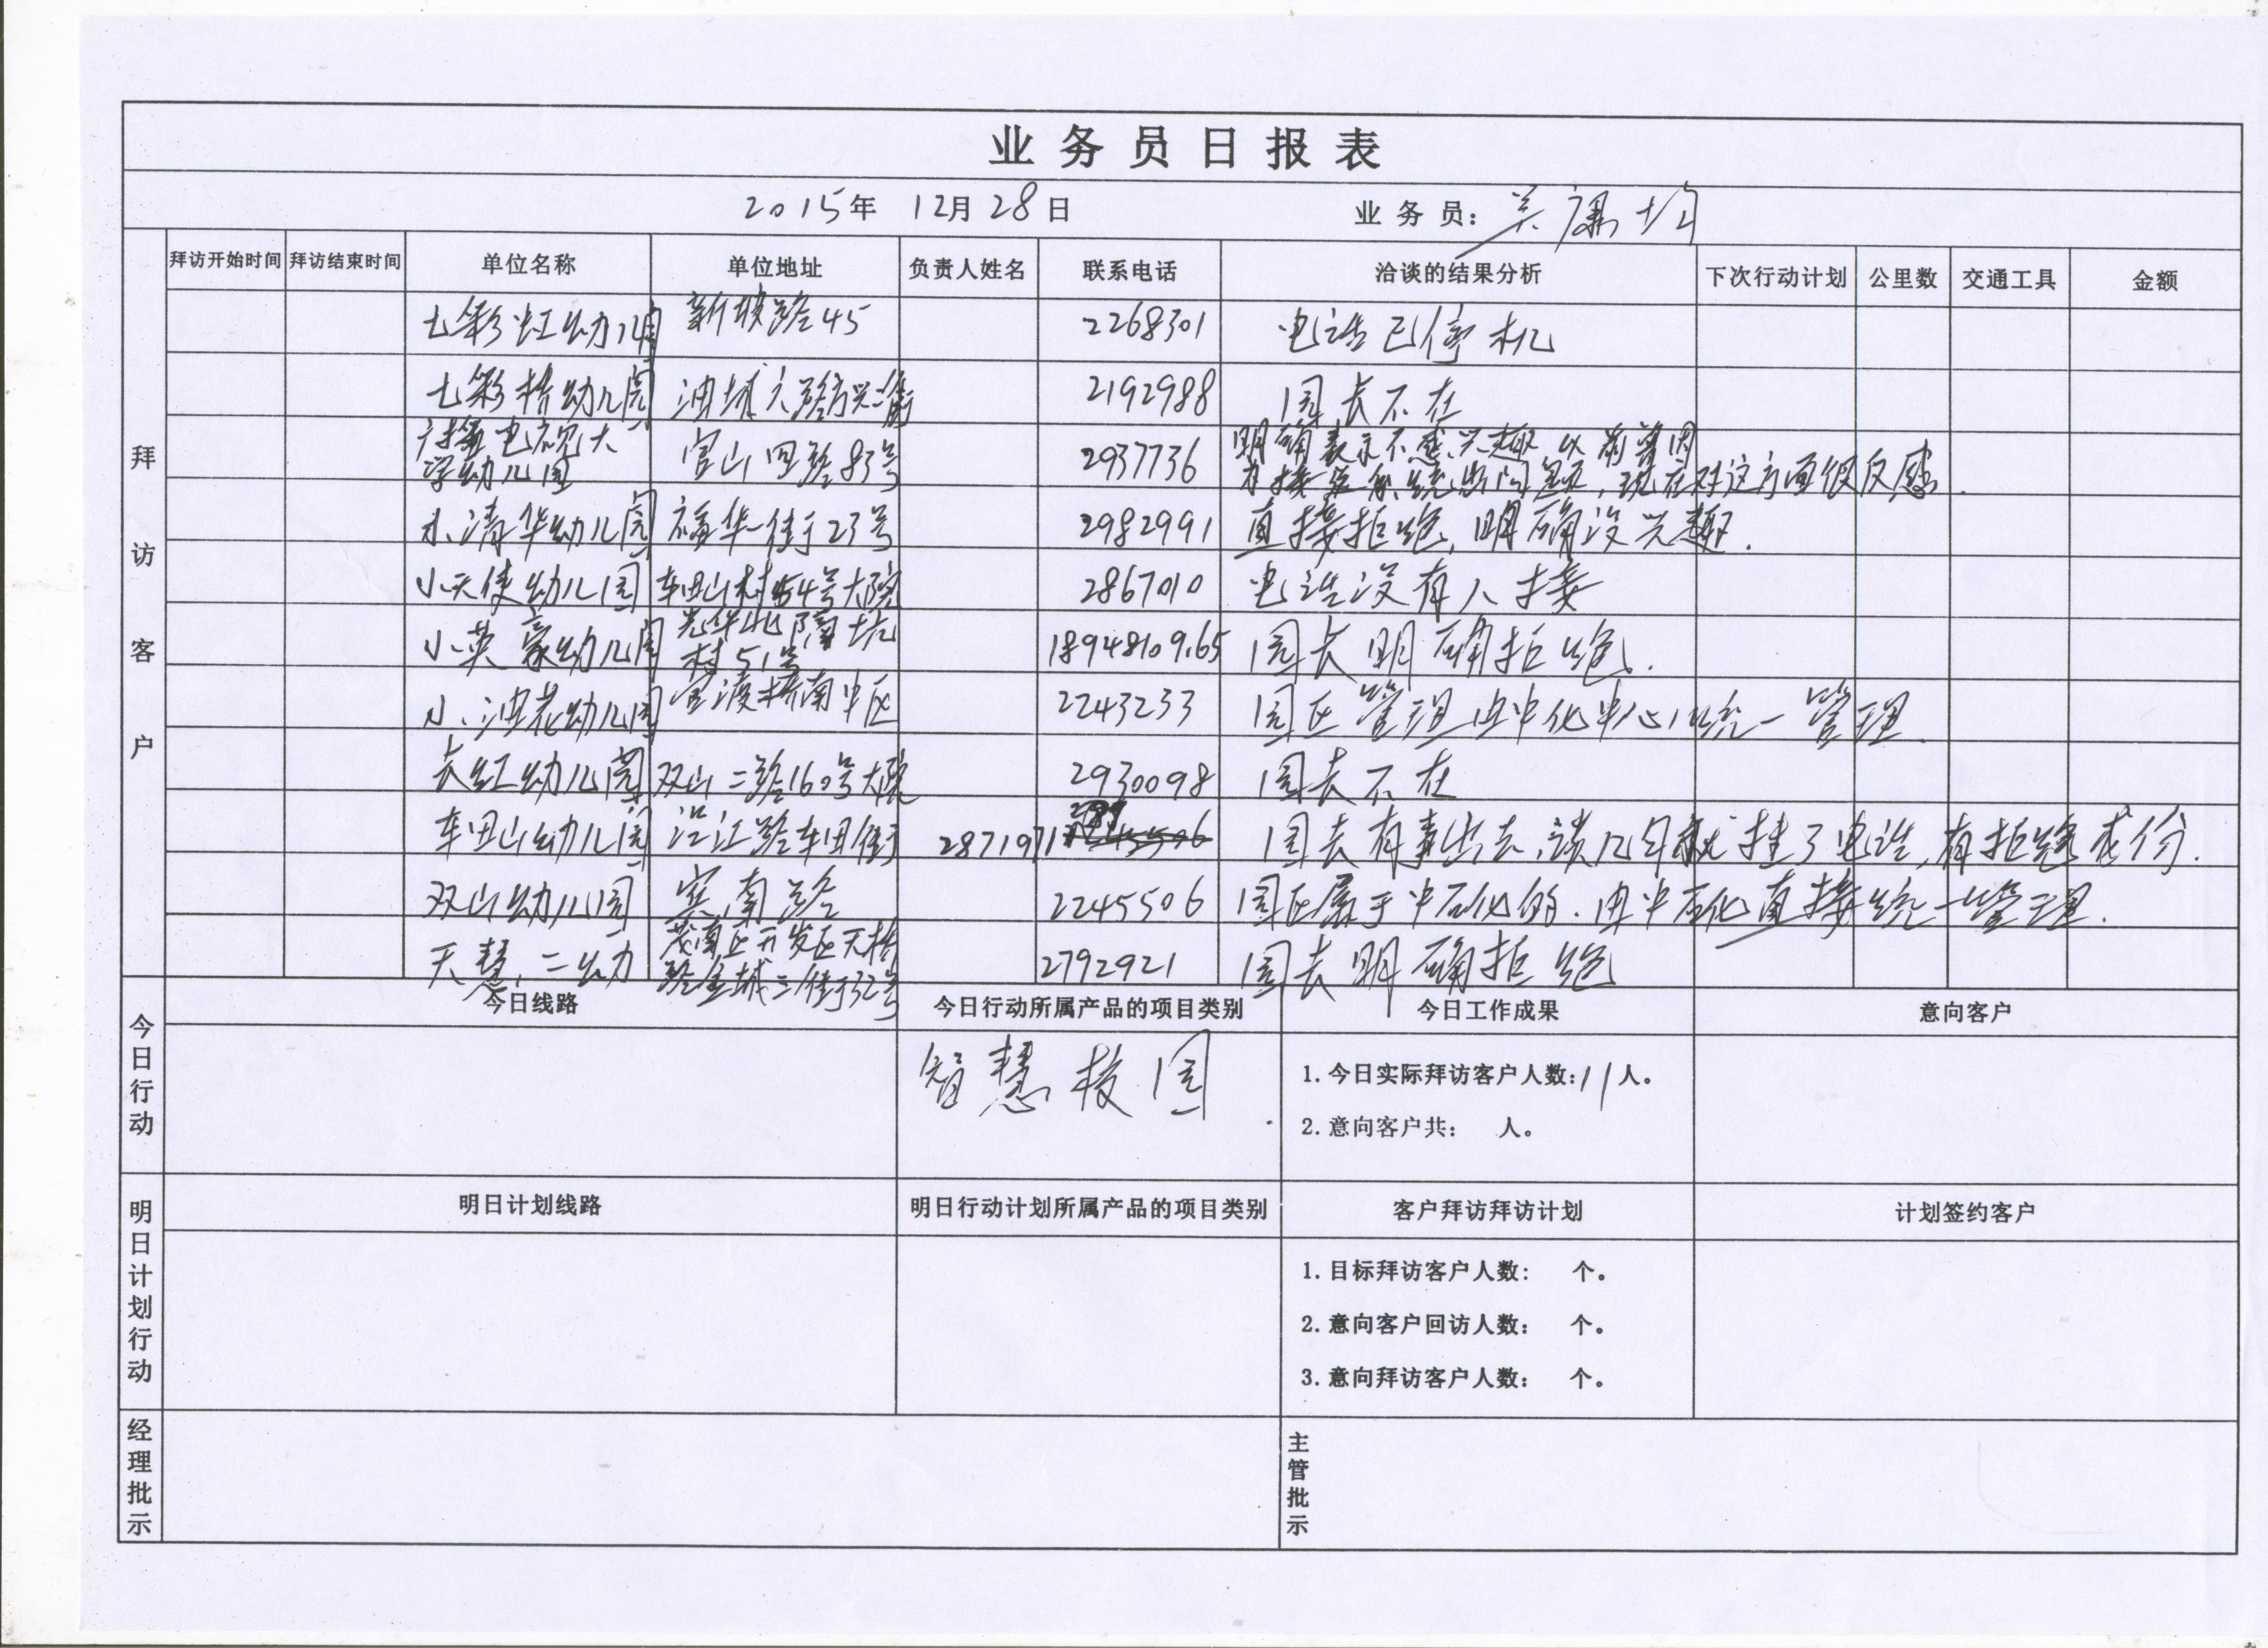 业务员日报表
2015年 12月28日 业务员：吴
拜访开始时间 拜访结束时间 单位名称 单位地址 负责人姓名 联系电话 洽谈的结果分析 下次行动计划 公里数 交通工具 金额
拜访客户
七彩虹幼儿园 新坡路45 2268301 电话已停机
七彩桥幼儿园 油城六路 2192988 园长不在
广播电视大学幼儿园 官山四路83号 2937736 明确表示不感兴趣 以前曾因 ，现在对这方面很反感.
小清华幼儿园 福华一街23号 2982991 直接拒绝，明确没兴趣.
小天使幼儿园 车田山村54号大院 2867010 电话没有人接
小英豪幼儿园 光华北 坑村51号 18948109165 园长明确拒绝.
小油花幼儿园 官渡桥南中区 2243233 园区管理由中化中心统一管理.
长红幼儿园 双山二路160号大院 2930098 园长不在
车田山幼儿园 沿江路车田街 2871971 园长有事出去，谈几句就挂了电话，有拒绝成份.
双山幼儿园 宾南路 2245506 园区属于中石化的.由中石化直接统一管理.
天慧二幼 茂南区开发区天桥路金城二街32号 2792921 园长明确拒绝
今日行动
今日线路 今日行动所属产品的项目类别 今日工作成果 意向客户
智慧校园
1.今日实际拜访客户人数：11人。
2.意向客户共： 人。
明日计划行动
明日计划线路 明日行动计划所属产品的项目类别 客户拜访拜访计划 计划签约客户
1.目标拜访客户人数： 个。
2.意向客户回访人数： 个。
3.意向拜访客户人数： 个。
经理批示 主管批示